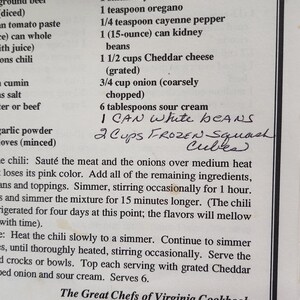 ground beef 1 teaspoon oregano
diced) 1/4 teaspoon cayenne pepper
n tomato paste 1 (15-ounce) can kidney
e) can whole beans
ith juice) 1 1/2 cups Cheddar cheese
ons chili (grated)
n cumin 3/4 cup onion (coarsely
as salt chopped)
er or beef 6 tablespoons sour cream
1 CAN White beans
garlic powder 2 Cups FROZEN Squash
oves (minced) Cubes
e chili: Sauté the meat and the onions over medium heat
loses its pink color. Add all of the remaining ingredients,
ans and toppings. Simmer, stirring occasionally for 1 hour.
s and simmer the mixture for 15 minutes longer. (The chili
rigerated for four days at this point; the flavors will mellow
with time).
e: Heat the chili slowly to a simmer. Continue to simmer
es, until thoroughly heated, stirring occasionally. Serve the
d crocks or bowls. Top each serving with grated Cheddar
ped onion and sour cream. Serves 6.
The Great Chefs of Virginia Cookbook